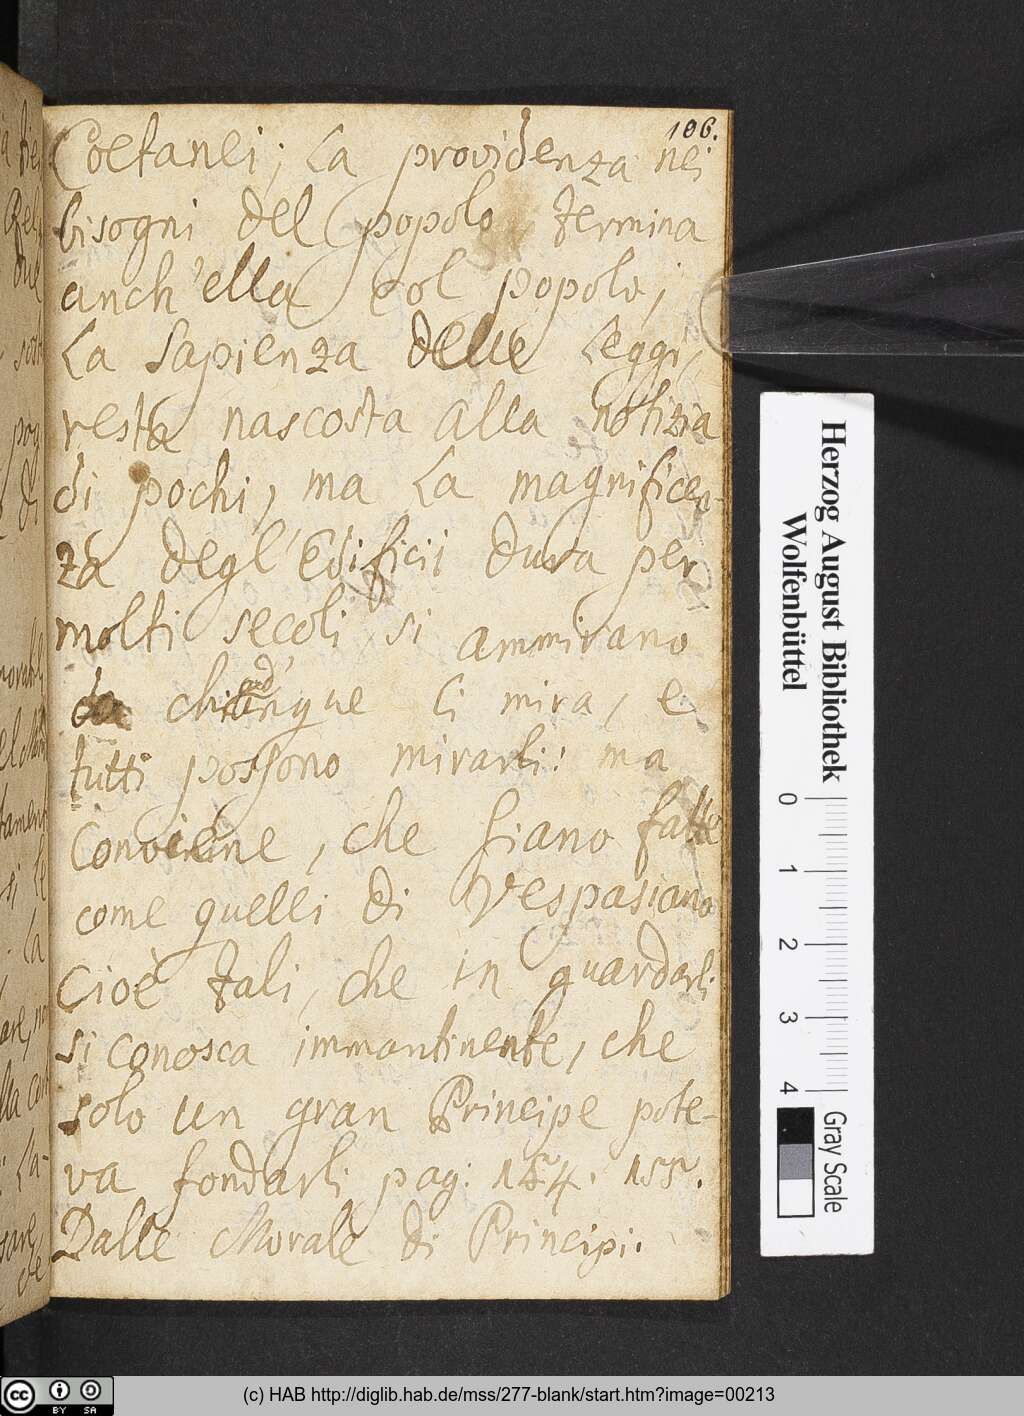 106.
Coetanei; La providenza nei
bisogni del popolo termina
anch'ella col popolo;
La Sapienza delle Leggi,
resta nascosta alla notizia
di pochi, ma La magnificen-
za degl'Edificii dura per
molti secoli si ammirano
da chiunque li mira, e
tutti possono mirarli: ma
conviene, che siano fatte
come quelli di Vespasiano
Cioè tali, che in guardarli
si conosca immantinente, che
solo un gran Principe pote-
va fondarli pag: 154. 155.
Dalle Morale di Principi.
Herzog August Bibliothek
Wolfenbüttel
0 1 2 3 4
Gray Scale
CC BY SA
(c) HAB http://diglib.hab.de/mss/277-blank/start.htm?image=00213